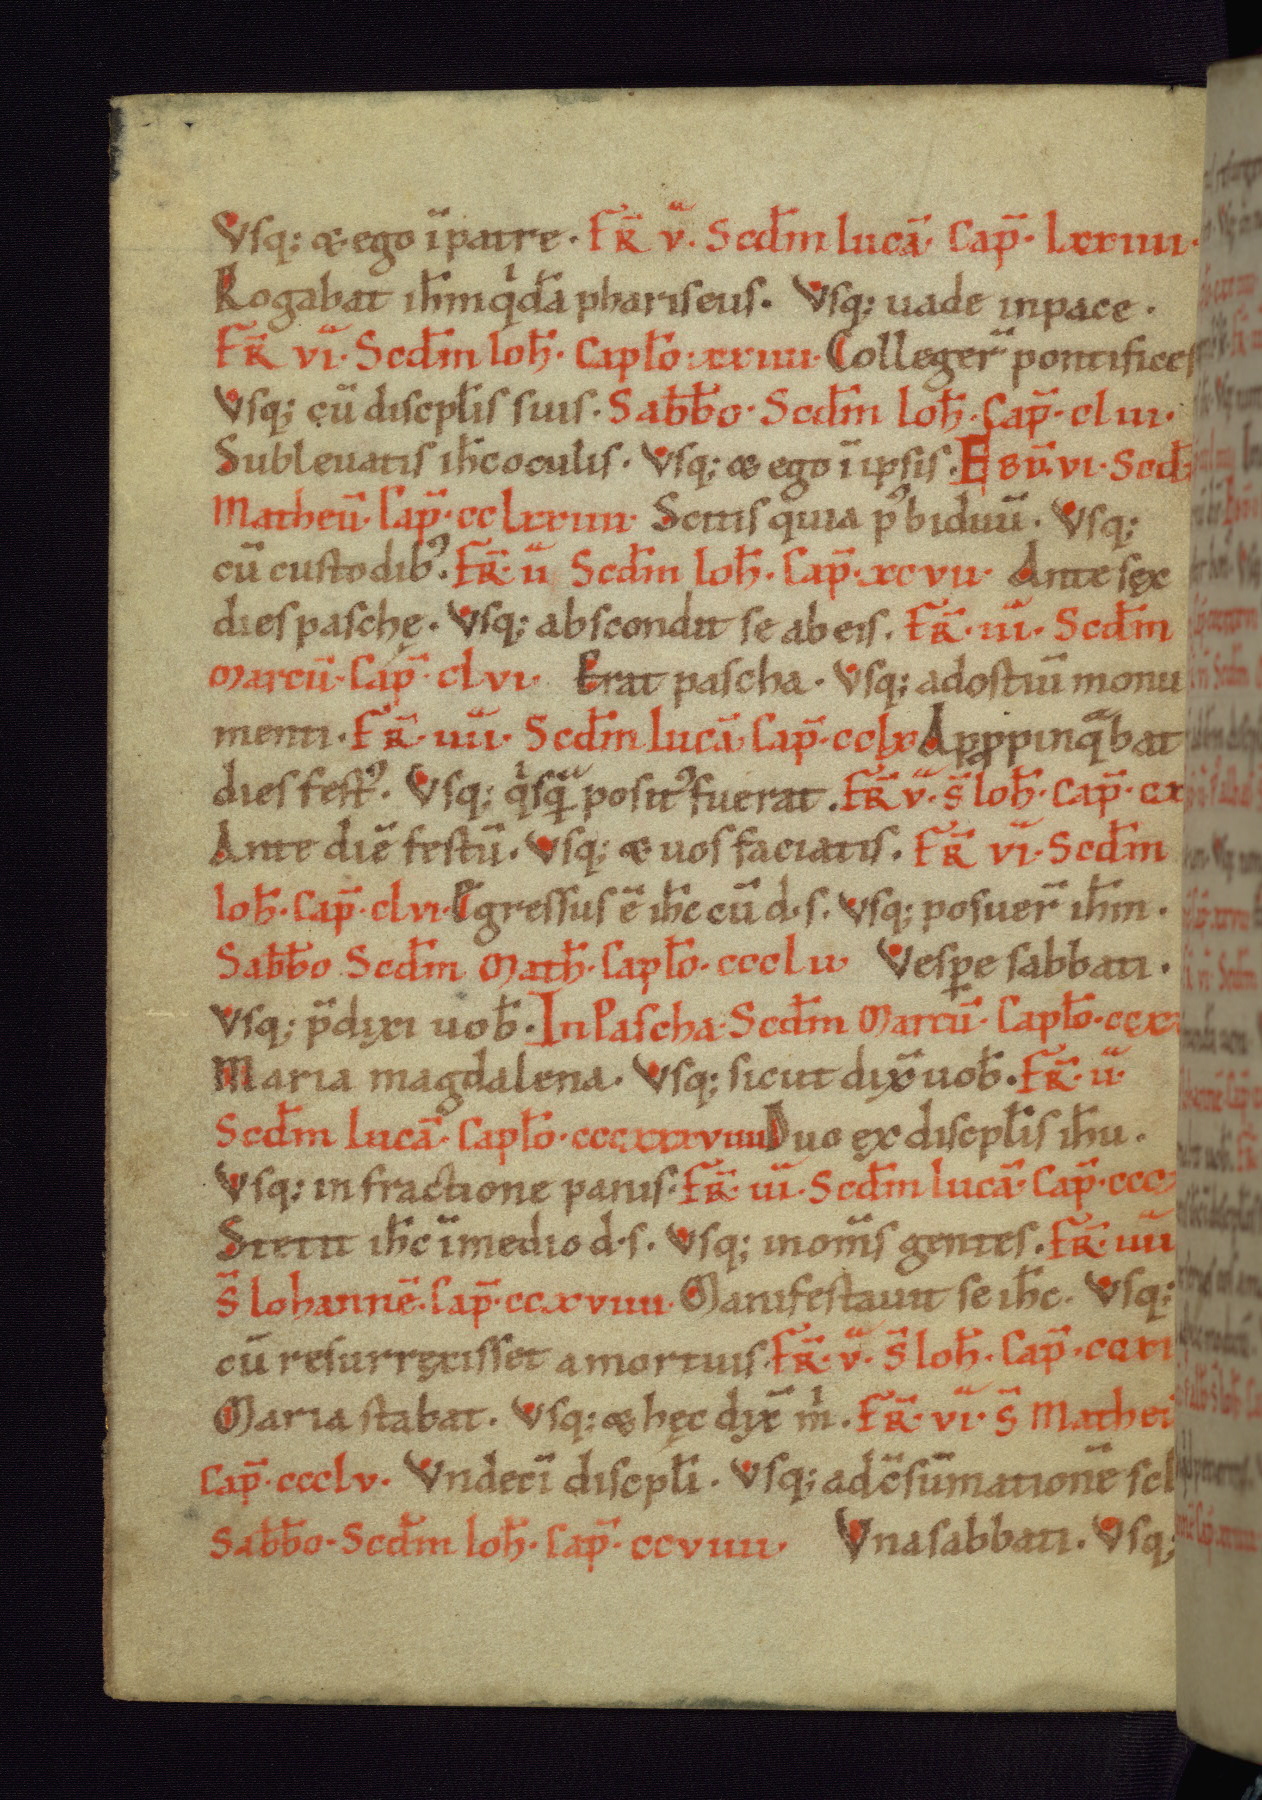 Vsq; & ego ī patre · FR̄ v̄ · Scd̄m lucā Cap̄ · lxxiiii ·
Rogabat ih̄m qͥdā phariseus · Vsq; uade in pace ·
FR̄ vī · Scd̄m Ioh̄ · Capl̄o · xxiiii · Colleger̄ pontifices
Vsq; cū discpl̄is suis · Sabb̄o · Scd̄m Ioh̄ · Cap̄ · clui ·
Subleuatis ih̄c oculis · Vsq; & ego ī ipsis · Scd̄
Matheū · Cap̄ · Scitis quia pꝰ biduū · Vsq;
cū custodibꝰ · FR̄ · ii Scd̄m Ioh̄ · Cap̄ · xcvii · Ante sex
dies paschę · Vsq; abscondit se ab eis · FR̄ · iii · Scd̄m
Marcū · Cap̄ · clvi · Erat pascha · Vsq; ad ostiū monu
menti · FR̄ · iiii · Scd̄m lucā Cap̄ · cclx Appp̱inqͣbat
dies festꝰ · Vsq; qͥsqͣ positꝰ fuerat · FR̄ v̄ · S̄ Ioh̄ · Cap̄ · cx
Ante diē festū · Vsq; & uos faciatis · FR̄ vī · Scd̄m
Ioh̄ · Cap̄ · clvi · Egressus ē ih̄c cū d · s · Vsq; posuer̄ ih̄m ·
Sabb̄o Scd̄m Math̄ · Capl̄o · ccclii Vespe sabbati ·
Vsq; p̄dixi uob̄ · In Pascha · Scd̄m Marcū · Capl̄o ·
Maria magdalena · Vsq; sicut dix̄ uob̄ · FR̄ · ii ·
Scd̄m lucā · Capl̄o · cccxxxviiii Duo ex discipl̄is ih̄u ·
Vsq; in fractione panis · FR̄ · iii · Scd̄m lucā · Cap̄ · ccc
Stetit ih̄c ī medio d · s · Vsq; in om̄s gentes · FR̄ · iiii
S̄ Iohannē · Cap̄ · ccxviiii · Manifestauit se ih̄c · Vsq;
cū resurrexisset a mortuis · FR̄ · v̄ · S̄ Ioh̄ · Cap̄ · ccxi
Maria stabat · Vsq; & hęc dix̄ m̄ · FR̄ · vī · S̄ Mathei
Cap̄ · ccclv · Vndecī discpl̄i · Vsq; ad c̄sūmationē scl
Sabb̄o · Scd̄m Ioh̄ · Cap̄ · ccviiii · Vna sabbati · Vsq;